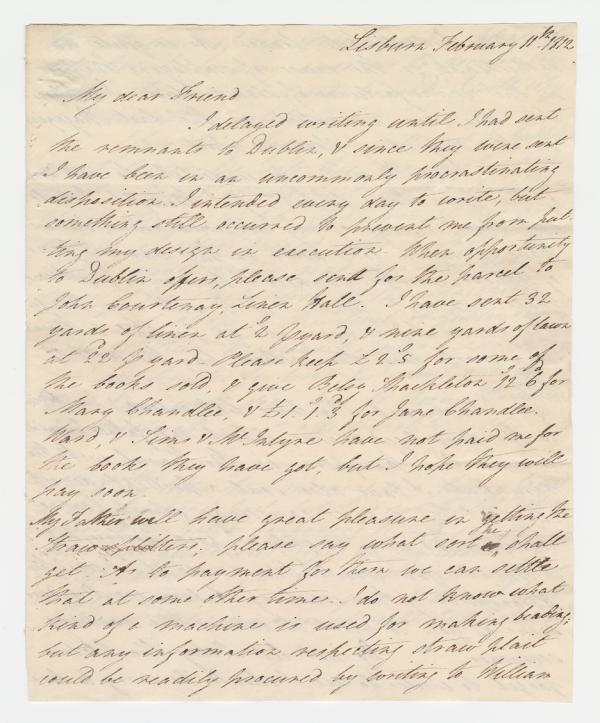 Lisburn February 11th 1812
My dear Friend
I delayed writing until I had sent
the remnants to Dublin, & since they were sent
I have been in an uncommonly procrastinating
disposition. I intended every day to write, but
something still occurred to prevent me from put
ting my design in execution. When opportunity
to Dublin offers, please send for the parcel to
John Courtenay, Linen Hall. I have sent 32
yards of linen at 2 yard, & nine yards of lawn
at 22 yard. Please keep £2 5 for some of
the books sold, & give Betsy Shackleton 12 6 for
Mary Chandlee, & £1. 1. 3 for Jane Chandlee.
Ward, & Sims & McIntyre have not paid me for
the books they have got, but I hope they will
pay soon.
My Father will have great pleasure in getting the
straw splitters; please say what sort he shall
get. As to payment for them we can settle
that at some other time. I do not know what
kind of a machine is used for making beading;
but any information respecting straw plait
could be readily procured by writing to William